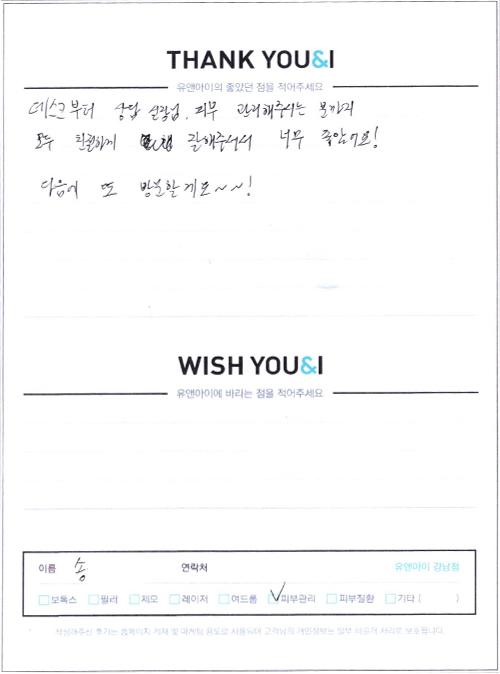 THANK YOU&I
유앤아이의 좋았던 점을 적어주세요
데스크부터 상담 실장님, 피부 관리해주시는 분까지
모두 친절하게 잘해주셔서 너무 좋았어요!
다음에 또 방문할게요~~!
WISH YOU&I
유앤아이에 바라는 점을 적어주세요
이름 송 연락처 유앤아이 강남점
보톡스 필러 제모 레이저 여드름 피부관리 피부질환 기타 ( )
* 작성해주신 후기는 홈페이지 게재 및 마케팅 용도로 사용되며 고객님의 개인정보는 일부 비공개 처리로 보호됩니다.